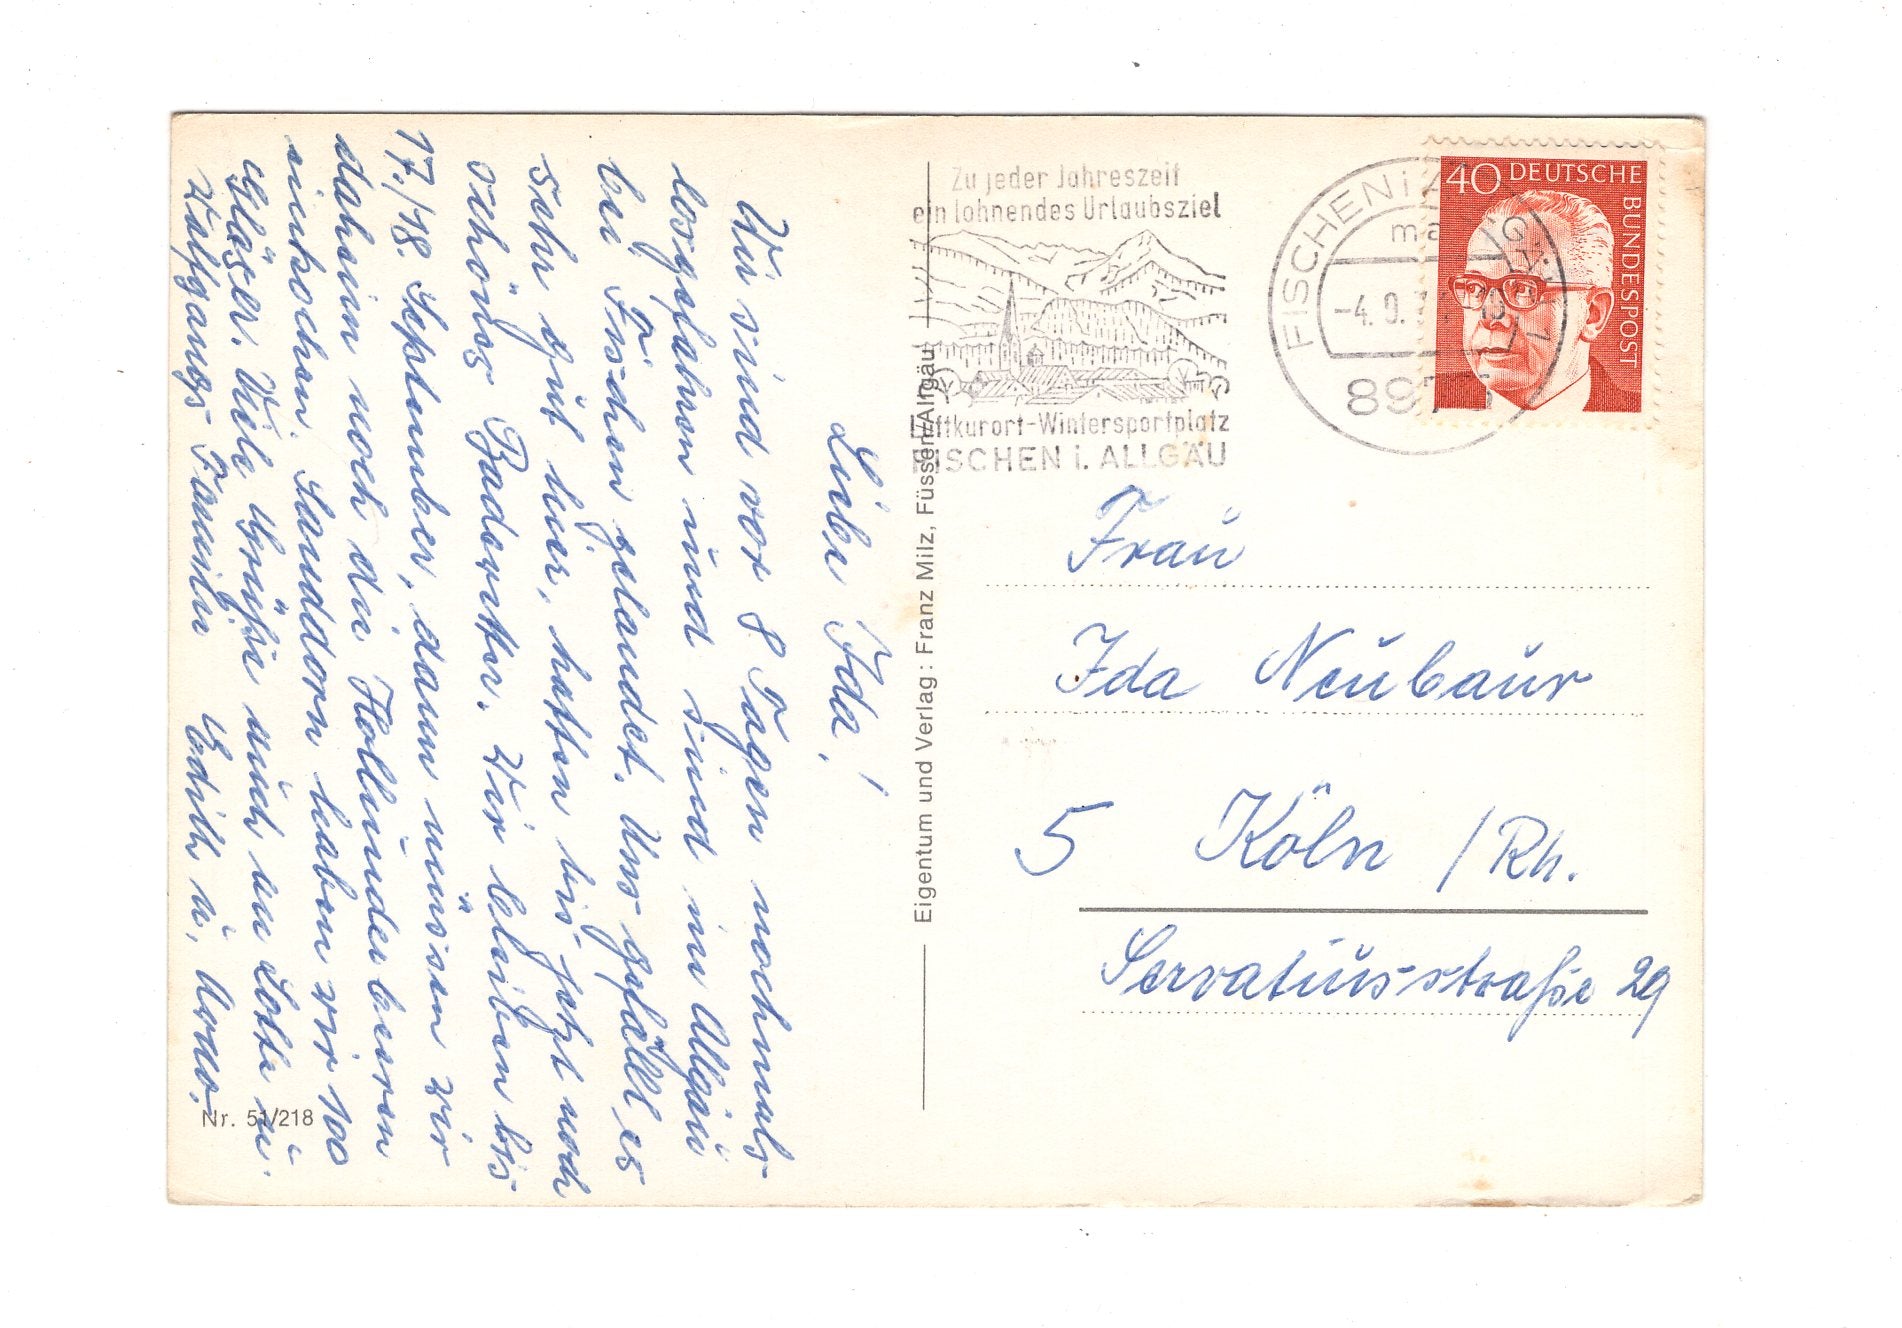 Liebe Ida!
Wir sind vor 8 Tagen nochmals
losgefahren und sind im Allgäu
bei Fischen gelandet. Uns gefällt es
sehr gut hier, hatten bis jetzt noch
schönes Badewetter. Wir bleiben bis
17./18. September, dann müssen wir
daheim noch die Hollunderbeeren
einkochen. Sanddorn haben wir 100
Gläser. Viele Grüße auch an Lotte u.
Wolfgangs Familie Edith u.
Zu jeder Jahreszeit
ein lohnendes Urlaubsziel
Luftkurort-Wintersportplatz
FISCHEN i. ALLGÄU
FISCHEN i. ALLGÄU 1
ma
-4.9.
897
40 DEUTSCHE
BUNDESPOST
Eigentum und Verlag: Franz Milz, Füssen/Allgäu
Frau
Ida Neubaur
5 Köln /Rh.
Servatiusstraße 29
Nr. 51/218